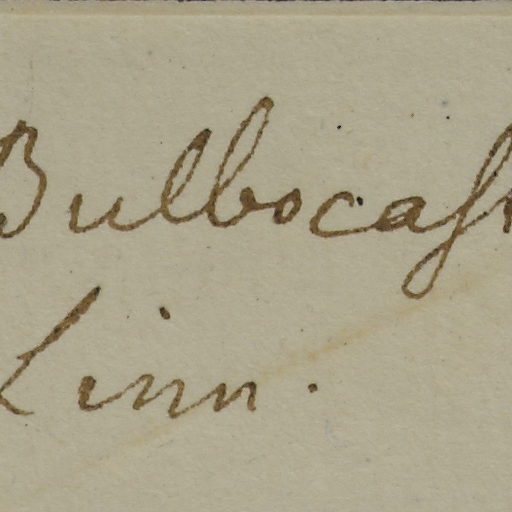 Bulbocas
Linn.